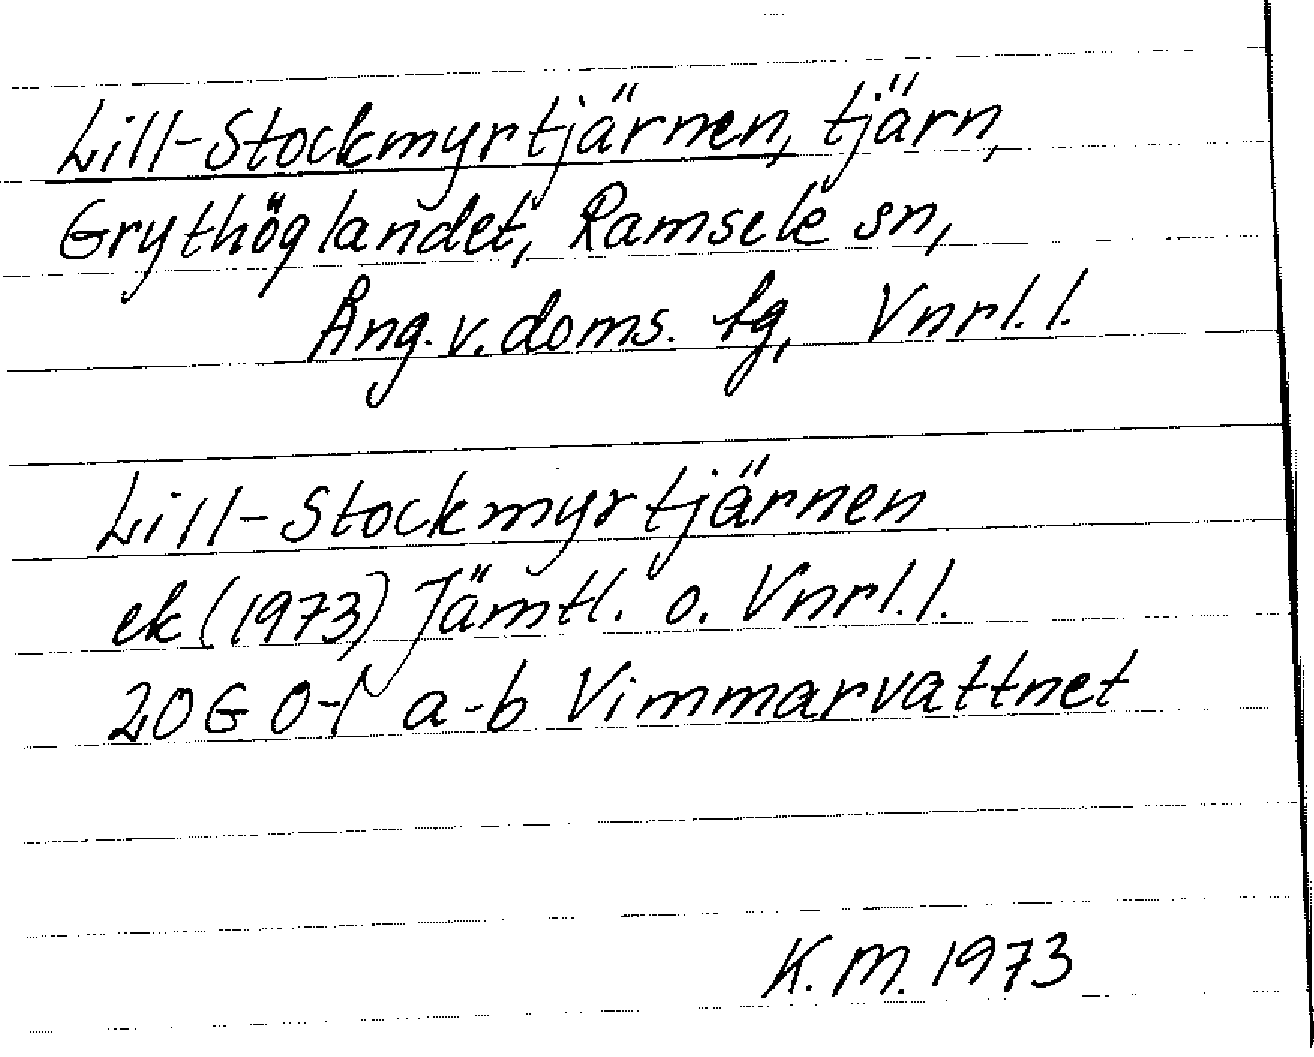 Lill-Stockmyrtjärnen, tjärn,
Grythöglandet, Ramsele sn,
Ång. v. doms. tg, Vnrl. l.
Lill-Stockmyrtjärnen
ek (1973) Jämtl. o. Vnrl. l.
20G 0-1 a-b Vimmarvattnet
K. M. 1973